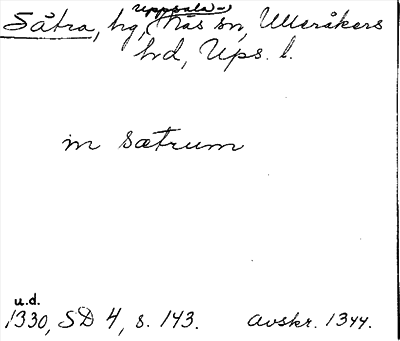 Uppsala-)
Såtra, hg, (Näs sn, Ulleråkers
hd, Ups. l.
in sætrum
u.d.
1330, SD 4, s. 143. Avskr. 1344.